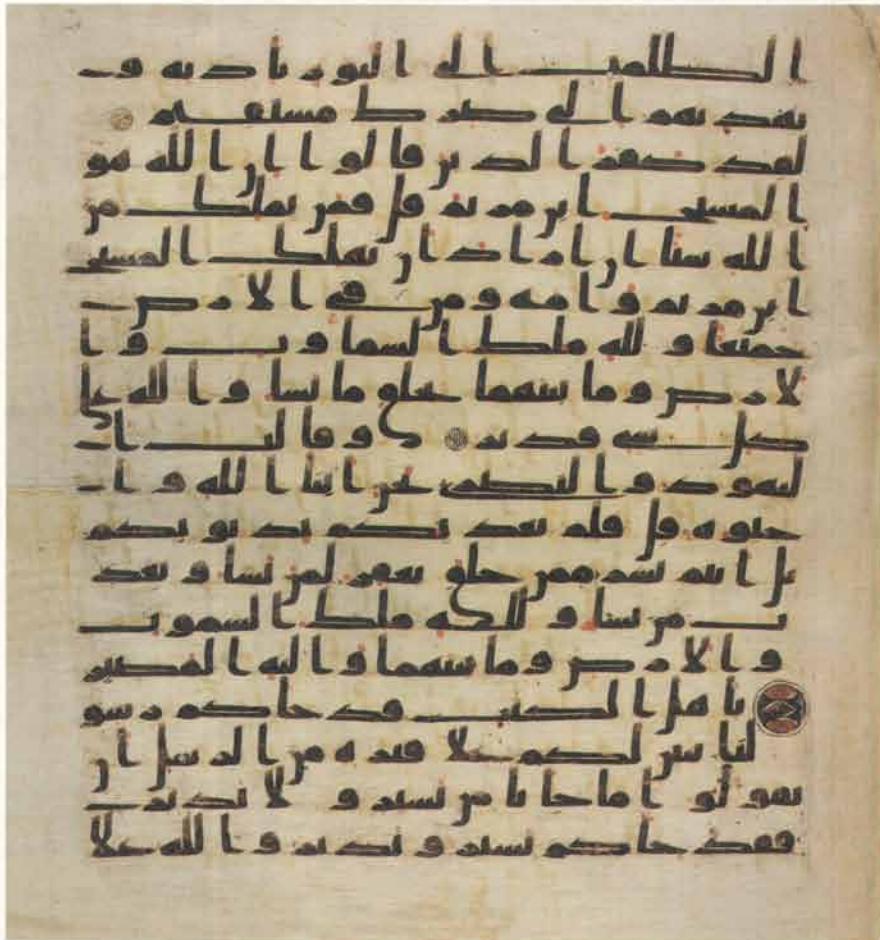 الظلمت الى النور باذنه و
يهديهم الى صرط مستقيم
لقد كفر الذين قالوا ان الله هو
المسيح ابن مريم قل فمن يملك من
الله شيا ان اراد ان يهلك المسيح
ابن مريم وامه ومن في الارض
جميعا ولله ملك السماوت وا
لارض وما بينهما يخلق ما يشا والله علا
كل شي قدير وقالت ا
ليهود والنصرى نحن ابنا الله وا
حبوه قل فلم يعذبكم بذنوبكم
بل انتم بشر ممن خلق يغفر لمن يشا ويعذ
ب من يشا ولله ملك السموت
والارض وما بينهما واليه المصير
ياهل الكتب قد جاكم رسو
لنا يبين لكم علا فترة من الرسل ان
تقولوا ما جانا من بشير ولا نذير
فقد جاكم بشير ونذير والله علا